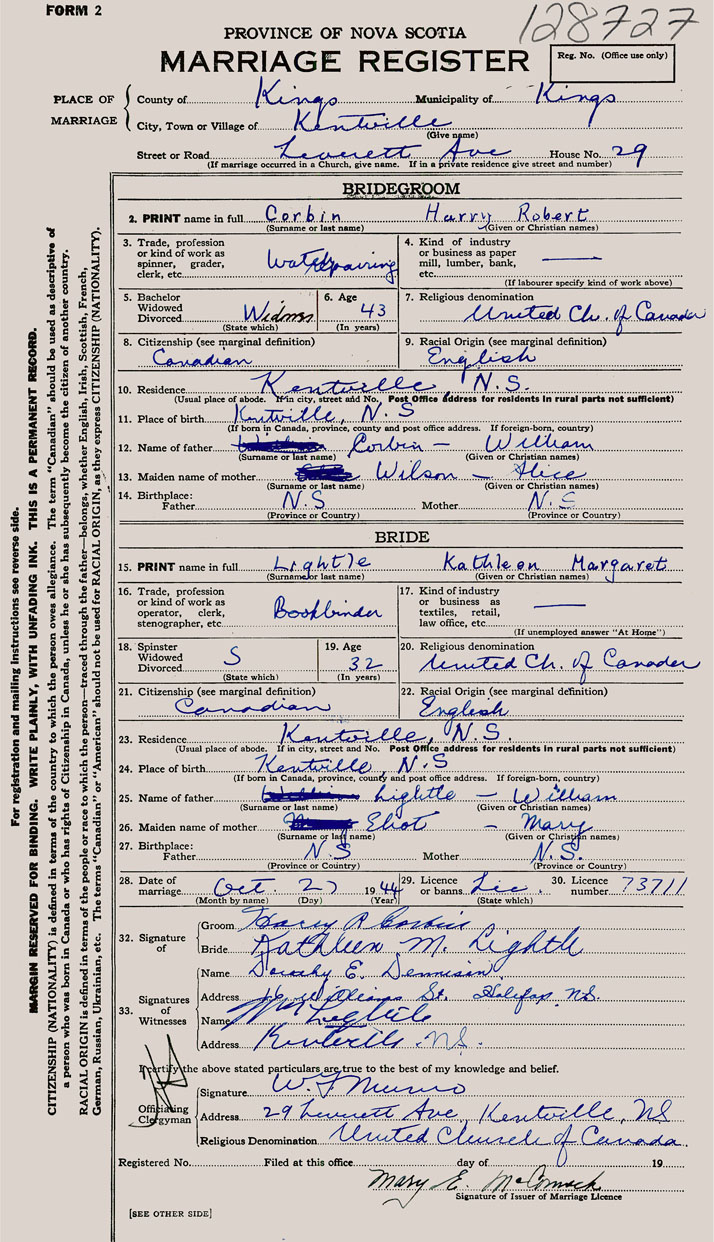 FORM 2
128727
PROVINCE OF NOVA SCOTIA
MARRIAGE REGISTER
Reg. No. (Office use only)
PLACE OF MARRIAGE
County of Kings Municipality of Kings
City, Town or Village of Kentville
(Give name)
Street or Road Leverett Ave House No. 29
(If marriage occurred in a Church, give name. If in a private residence give street and number)
BRIDEGROOM
2. PRINT name in full Corbin Harry Robert
(Surname or last name) (Given or Christian names)
3. Trade, profession or kind of work as spinner, grader, clerk, etc. Watch repairing
4. Kind of industry or business as paper mill, lumber, bank, etc. ——
(If labourer specify kind of work above)
5. Bachelor Widowed Divorced Widower
(State which)
6. Age 43
(In years)
7. Religious denomination United Ch. of Canada
8. Citizenship (see marginal definition) Canadian
9. Racial Origin (see marginal definition) English
10. Residence Kentville, N.S.
(Usual place of abode. If in city, street and No. Post Office address for residents in rural parts not sufficient)
11. Place of birth Kentville, N.S
(If born in Canada, province, county and post office address. If foreign-born, country)
12. Name of father Corbin - William
(Surname or last name) (Given or Christian names)
13. Maiden name of mother Wilson - Alice
(Surname or last name) (Given or Christian names)
14. Birthplace: Father N.S Mother N.S
(Province or Country) (Province or Country)
BRIDE
15. PRINT name in full Lightle Kathleen Margaret
(Surname or last name) (Given or Christian names)
16. Trade, profession or kind of work as operator, clerk, stenographer, etc. Bookbinder
17. Kind of industry or business as textiles, retail, law office, etc. ——
(If unemployed answer "At Home")
18. Spinster Widowed Divorced S
(State which)
19. Age 32
(In years)
20. Religious denomination United Ch. of Canada
21. Citizenship (see marginal definition) Canadian
22. Racial Origin (see marginal definition) English
23. Residence Kentville, N.S.
(Usual place of abode. If in city, street and No. Post Office address for residents in rural parts not sufficient)
24. Place of birth Kentville, N.S
(If born in Canada, province, county and post office address. If foreign-born, country)
25. Name of father Lightle - William
(Surname or last name) (Given or Christian names)
26. Maiden name of mother Eliot - Mary
(Surname or last name) (Given or Christian names)
27. Birthplace: Father N.S Mother N.S.
(Province or Country) (Province or Country)
28. Date of marriage Oct. 27 1944
(Month by name) (Day) (Year)
29. Licence or banns Lic.
(State which)
30. Licence number 73711
32. Signature of
Groom Harry R Corbin
Bride Kathleen M. Lightle
33. Signatures of Witnesses
Name Dorothy E. Dennison
Address Williams St. Halifax N.S.
Name Wm Lightle
Address Kentville N.S.
I certify the above stated particulars are true to the best of my knowledge and belief.
Officiating Clergyman
Signature W. J. Munro
Address 29 Leverett Ave, Kentville, NS
Religious Denomination United Church of Canada.
Registered No. Filed at this office day of 19
Mary E. McCormack
Signature of Issuer of Marriage Licence
[SEE OTHER SIDE]
For registration and mailing instructions see reverse side.
MARGIN RESERVED FOR BINDING. WRITE PLAINLY, WITH UNFADING INK. THIS IS A PERMANENT RECORD.
CITIZENSHIP (NATIONALITY) is defined in terms of the country to which the person owes allegiance. The term "Canadian" should be used as descriptive of
a person who was born in Canada or who has rights of Citizenship in Canada, unless he or she has subsequently become the citizen of another country.
RACIAL ORIGIN is defined in terms of the people or race to which the person—traced through the father—belongs, whether English, Irish, Scottish, French,
German, Russian, Ukrainian, etc. The terms "Canadian" or "American" should not be used for RACIAL ORIGIN, as they express CITIZENSHIP (NATIONALITY).